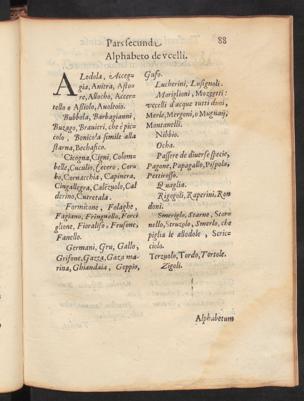 Pars secunda. 88
Alphabeto de vcelli.
ALodola, Acceggia, Anitra, Astore, Allocho, Accertello o Astiolo, Auoltoio.
Bubbola, Barbagianni,
Buzago, Brauieri, che è piccolo, Bonicola simile alla
starna, Bechafico.
Cicogna, Cigni, Colombelle, Cuculio, Cecero, Corbo, Cornacchia, Capinera,
Cingallegra, Calezuolo, Calderino, Cutretala.
Formicone, Folaghe,
Fagiano, Fringuello, Forciglione, Fioralisi, Frusone,
Fanello.
Germani, Gru, Gallo,
Grifone, Gazza, Gaza marina, Ghiandaia, Goppio,
Gufo.
Lucherini, Lusignoli.
Marigliani,
vccelli d'acque tutti doni,
Merle, Mergoni, o Mugnaij,
Montanelli.
Nibbio.
Ocha.
Passere de diuerse spetie,
Pagone, Papagallo, Pispola,
Pettirosso.
Quaglia.
Rigogoli, Raperini, Rondoni.
Smeriglo, Starne, Stornello, Struzolo, Smerlo, che
piglia le allodole, Scricciolo.
Terzuolo, Tordo, Tortole.
Zigoli.
Alphabetum